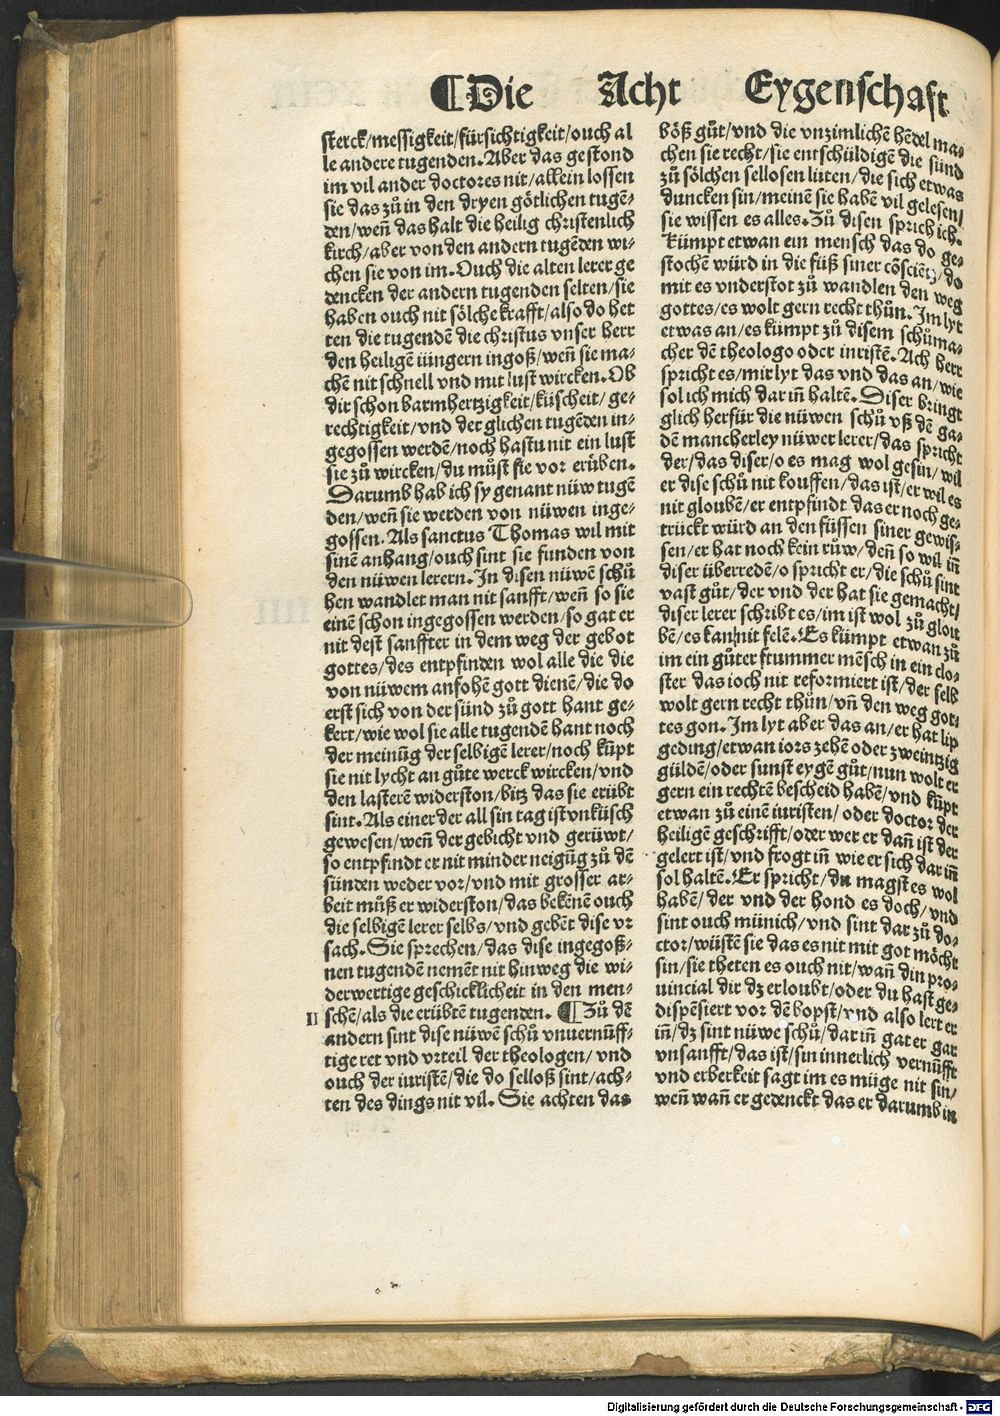 ¶Die Acht Eygenschaft
sterck/messigkeit/fürsichtigkeit/ouch al
le andere tugenden. Aber das gestond
im vil ander doctores nit/allein lossen
sie das zů in den dryen götlichen tugē-
den/weñ das halt die heilig christenlich
kirch/aber von den andern tugēden wi-
chen sie von im. Ouch die alten lerer ge
dencken der andern tugenden selten/sie
haben ouch nit sölche krafft/also do het
ten die tugendē die christus vnser herr
den heiligē iüngern ingoß/weñ sie ma-
chē nit schnell vnd mit lust wircken. Ob
dir schon barmhertzigkeit/küscheit/ge-
rechtigkeit/vnd der glichen tugēden in-
gegossen werdē/noch hastu nit ein lust
sie zů wircken/du můst sie vor erüben.
Darumb hab ich sy genant nüw tugē
den/weñ sie werden von nüwen inge-
gossen. Als sanctus Thomas wil mit
sinē anhang/ouch sint sie funden von
den nüwen lerern. In disen nüwē schů
hen wandlet man nit sanfft/weñ so sie
einē schon ingegossen werden/so gat er
nit dest sanffter in dem weg der gebot
gottes/des entpfinden wol alle die die
von nüwem anfohē gott dienē/die do
erst sich von der sünd zů gott hant ge-
kert/wie wol sie alle tugendē hant noch
der meinūg der selbigē lerer/noch kūpt
sie nit lycht an gůte werck wircken/vnd
den lasterē widerston/bitz das sie erübt
sint. Als einer der all sin tag ist vnküsch
gewesen/weñ der gebicht vnd gerüwt/
so entpfindt er nit minder neigūg zů dē
sünden weder vor/vnd mit grosser ar-
beit můß er widerston/das bekēnē ouch
die selbigē lerer selbs/vnd gebēt dise vr
sach. Sie sprechen/das dise ingegoß-
nen tugendē nemēt nit hinweg die wi-
derwertige geschicklicheit in den men-
II schē/als die erübtē tugenden. ¶Zů dē
andern sint dise nüwē schů vnuernüff-
tige ret vnd vrteil der theologen/vnd
ouch der iuristē/die do selloß sint/ach-
ten des dings nit vil. Sie achten das
böß gůt/vnd die vnzimlichē hēdel ma-
chen sie recht/sie entschüldigē die sünd
zů sölchen sellosen lüten/die sich etwas
duncken sin/meinē sie habē vil gelesen/
sie wissen es alles. Zů disen sprich ich.
Kümpt etwan ein mensch das do ge-
stochē würd in die füß siner cōsciētz/do
mit es vnderstot zů wandlen den weg
gottes/es wolt gern recht thůn. Im lyt
etwas an/es kümpt zů disem schůma-
cher dē theologo oder iuristē. Ach herr
spricht es/mir lyt das vnd das an/wie
sol ich mich dar iñ haltē. Diser bringt
glich herfür die nüwen schů vß dē ga-
dē mancherley nüwer lerer/das spricht
der/das diser/o es mag wol gesin/wil
er dise schů nit kouffen/das ist/er wil es
nit gloubē/er entpfindt das er noch ge-
trückt würd an den füssen siner gewis-
sen/er hat noch kein růw/deñ so wil iñ
diser überredē/o spricht er/die schů sint
vast gůt/der vnd der hat sie gemacht/
diser lerer schribt es/im ist wol zů glou
bē/es kan nit felē. Es kümpt etwan zů
im ein gůter frummer mēsch in ein clo-
ster das ioch nit reformiert ist/der selb
wolt gern recht thůn/vñ den weg got-
tes gon. Im lyt aber das an/er hat lip
geding/etwan iors zehē oder zweintzig
güldē/oder sunst eygē gůt/nun wolt er
gern ein rechtē bescheid habē/vnd kūpt
etwan zů einē iuristen/oder doctor der
heiligē geschrifft/oder wer er dañ ist der
gelert ist/vnd frogt iñ wie er sich dar iñ
sol haltē. Er spricht/du magst es wol
habē/der vnd der hond es doch/vnd
sint ouch münich/vnd sint dar zů do-
ctor/wüstē sie das es nit mit got möcht
sin/sie theten es ouch nit/wañ din pro-
uincial dir dz erloubt/oder du hast ge-
dispēsiert vor dē bopst/vnd also lert er
iñ/dz sint nüwe schů/dar iñ gat er gar
vnsanfft/das ist/sin innerlich vernüfft
vnd erberkeit sagt im es müge nit sin/
weñ wañ er gedenckt das er darumb in
Digitalisierung gefördert durch die Deutsche Forschungsgemeinschaft - DFG